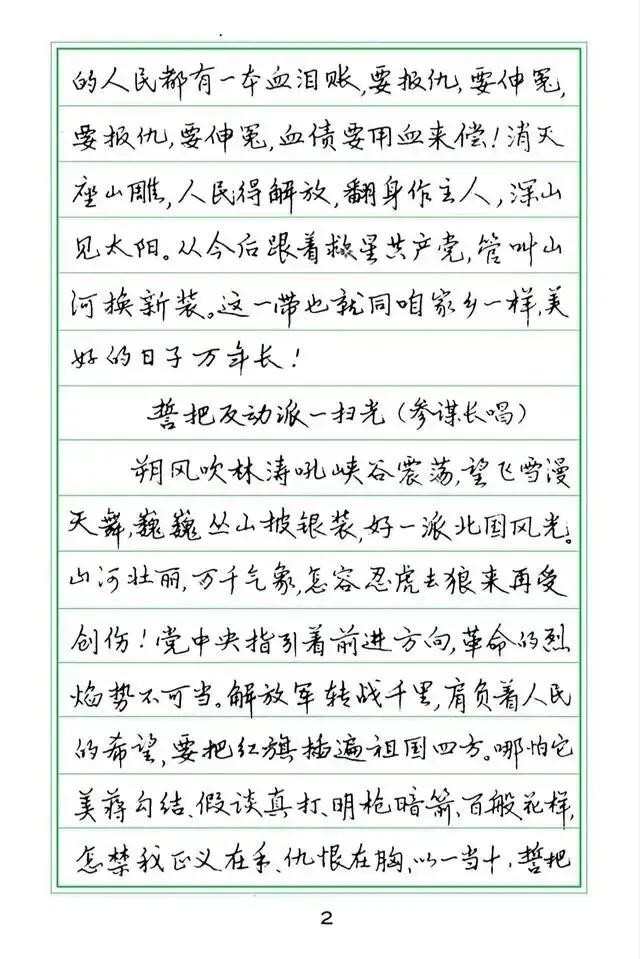 的人民都有一本血泪账,要报仇,要伸冤,
要报仇,要伸冤,血债要用血来偿!消灭
座山雕,人民得解放,翻身作主人,深山
见太阳。从今后跟着救星共产党,管叫山
河换新装。这一带也就同咱家乡一样,美
好的日子万年长!
誓把反动派一扫光(参谋长唱)
朔风吹林涛吼峡谷震荡,望飞雪漫
天舞,巍巍丛山披银装,好一派北国风光。
山河壮丽,万千气象,怎容忍虎去狼来再受
创伤!党中央指引着前进方向,革命的烈
焰势不可当。解放军转战千里,肩负着人民
的希望,要把红旗插遍祖国四方。哪怕它
美蒋勾结、假谈真打、明枪暗箭、百般花样,
怎禁我正义在手、仇恨在胸、以一当十,誓把
2